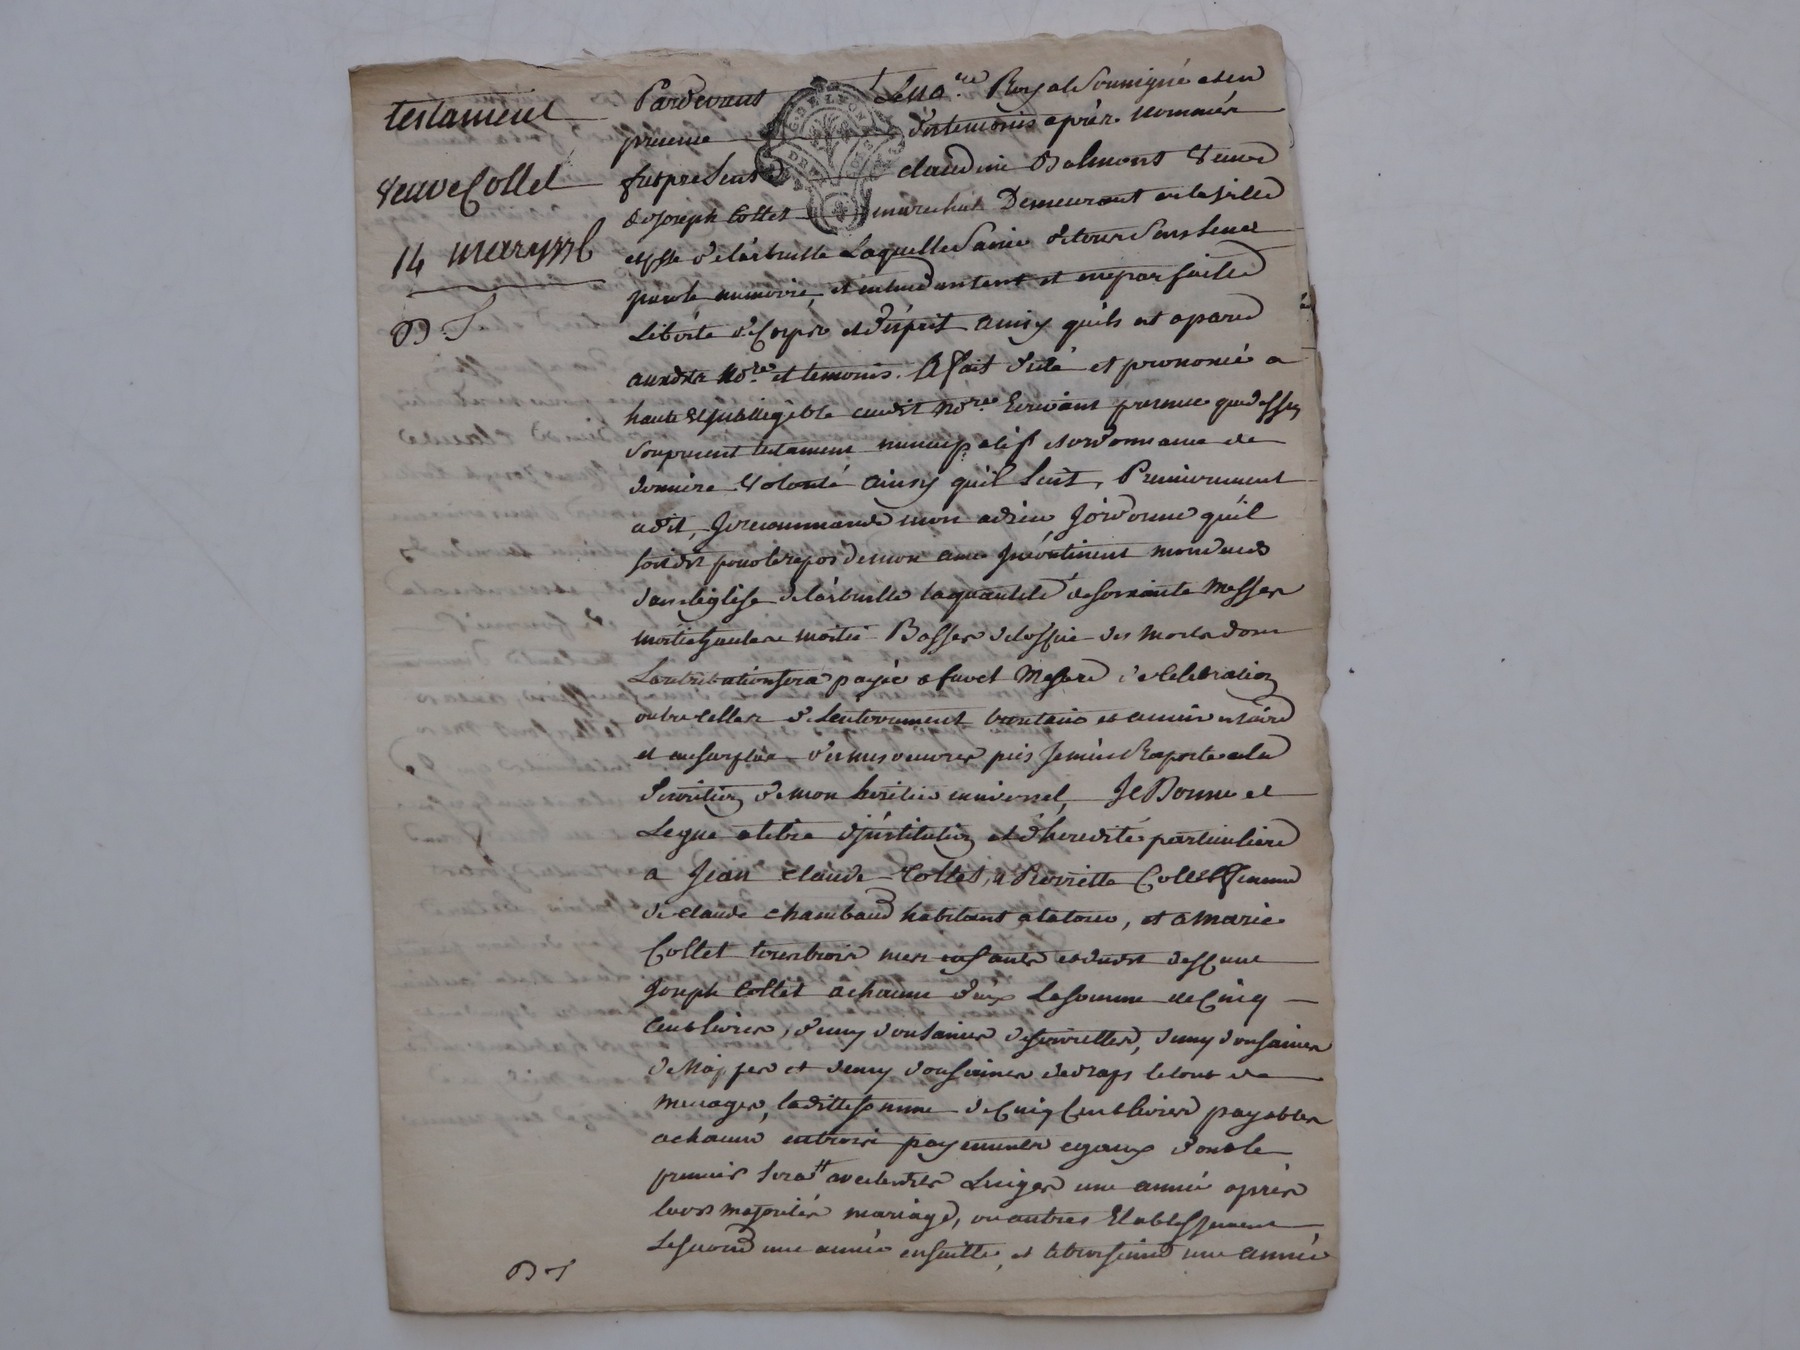 testament
veuve Collet
14 mars 1776
Pardevant Le no.re Royal Soussigné et en
presence des temoins après nommés
fut presente claudine Balmont veuve
de Joseph Collet marechal Demeurant en la ville
et ... de l'arbruille Laquelle Saine de tous Sens veue
parole memoire, et entendement et en parfaitte
Liberté de Corps et d'esprit ainsy qu'ils est aparu
auxdits No.re et temoins. A fait dicté et prononcé a
haute et intelligible audit No.re Ecrivant presence que dessus
Son present testament nuncupatif et ordonnance de
derniere volonté ainsy qu'il Suit, Premierement
a dit, Je recommande mon a dieu J'ordonne qu'il
soit dit pour le repos de mon ame Incontinent mon deces
dans l'eglise de l'arbruille la quantité de soixante Messes
moitié hautes moitié Basses de l'office des Morts dont
La retribution sera payée a fur et Mesure de celebration
outre celles de L'enterrement trentaine et anniversaire
et au surplus d'œuvres pies Je m'en Raporte a la
devotion de mon heritier universel, Je Donne et
Legue a titre d'institution et d'heredité particuliere
a Jean Claude Collet, a Pierrette Collet femme
de claude chambaud habitant a la tour, et a Marie
Collet tous trois mes enfants et dudit deffunt
Joseph Collet a chacun d'eux La somme de Cinq
Cent livres, demy dousaines de serviettes, demy dousaines
de Nappes et demy dousaines de draps le tout de
menages, laditte somme de Cinq Cent livres payables
a chacun en trois payements egaux dont le
premier sera avec lesdits Linges une année après
leurs majorités mariage, ou autres Etablissement
Le second une année ensuitte, et le troisieme une année